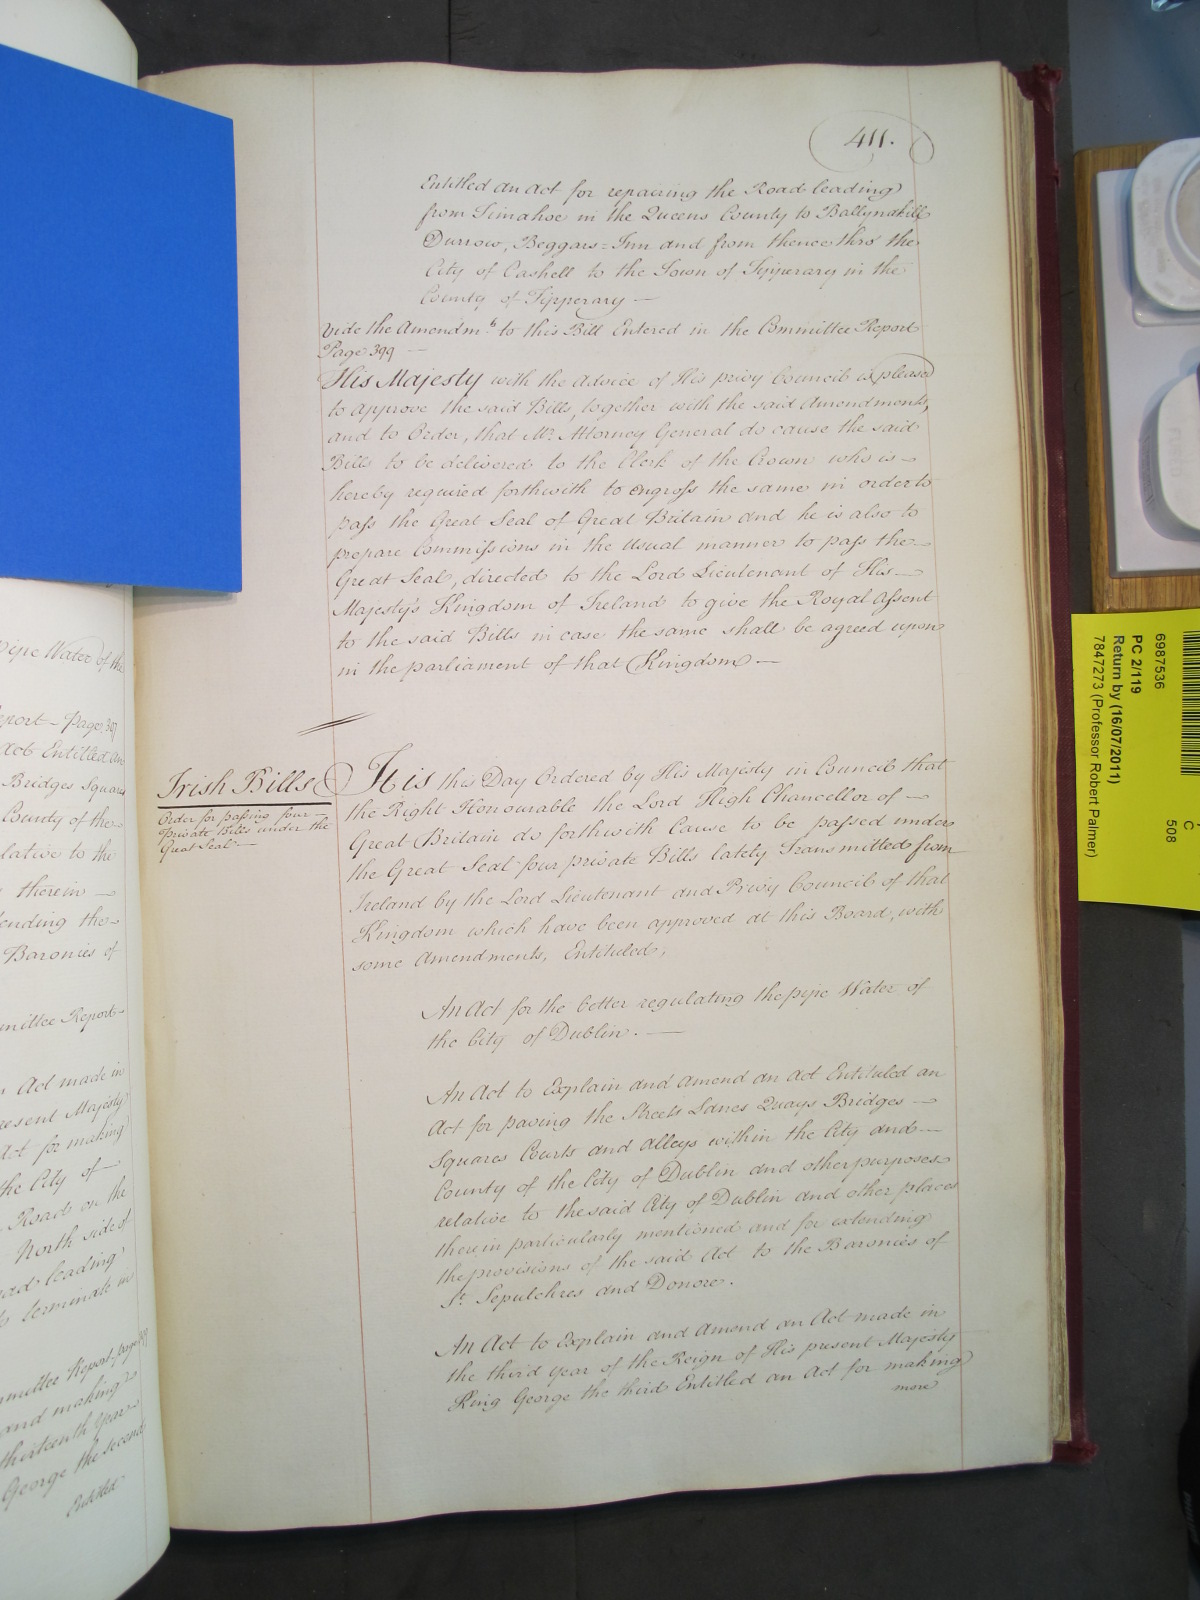 411.
Entitled an Act for repairing the Road leading
from Timahoe in the Queens County to Ballynakill
Durrow, Beggars=Inn and from thence thro' the
City of Cashell to the Town of Tipperary in the
County of Tipperary —
Vide the Amendmts. to this Bill Entered in the Committee Report
Page 399 —
His Majesty with the Advice of His privy Council is pleased
to approve the said Bills, together with the said Amendments,
and to Order, that Mr. Attorney General do cause the said
Bills to be delivered to the Clerk of the Crown who is —
hereby required forthwith to engross the same in order to
pass the Great Seal of Great Britain and he is also to
prepare Commissions in the usual manner to pass the —
Great Seal, directed to the Lord Lieutenant of His —
Majesty's Kingdom of Ireland to give the Royal Assent
to the said Bills in case the same shall be agreed upon
in the parliament of that Kingdom —
Irish Bills
Order for passing four —
private Bills under the
Great Seal —
It is this Day Ordered by His Majesty in Council that
the Right Honourable the Lord High Chancellor of —
Great Britain do forthwith Cause to be passed under
the Great Seal four private Bills lately Transmitted from
Ireland by the Lord Lieutenant and Privy Council of that
Kingdom which have been approved at this Board, with
some Amendments, Entituled,
An Act for the better regulating the pipe Water of
the City of Dublin. —
An Act to Explain and Amend an Act Entituled an
Act for paving the Streets Lanes Quays Bridges —
Squares Courts and Alleys within the City and —
County of the City of Dublin and other purposes
relative to the said City of Dublin and other places
therein particularly mentioned and for extending
the provisions of the said Act to the Baronies of
St. Sepulchres and Donore.
An Act to Explain and Amend an Act made in
the third year of the Reign of His present Majesty
King George the third Entitled an Act for making
more
pipe Water of the
Report — Page 397
Act Entitled an
Bridges Squares
County of the
relative to the
therein —
tending the —
Baronies of
Committee Report —
Act made in
present Majesty
Act for making
the City of —
Road on the
North side of
leading
terminate in
Committee Report page
and making
thirteenth year
George the second
Entitled
6987536
PC 2/119
Return by (16/07/2011)
7847273 (Professor Robert Palmer)
C
508